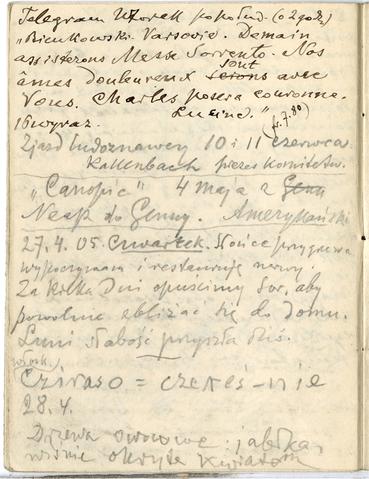 Telegram Wtorek popołud. (o 2 godz)
"Bienkowski. Varsovie. Demain
assisterons Messe Sorrento. Nos
âmes douloureux serons sont avec
Vous. Charles posera couronne.
Lucine."
16 wyraz. (fr. 7.80)
Zjazd ludoznawcy 10 i 11 czerwca.
Kallenbach prezes Komitetu.
"Canopic" 4 maja z
Neap. do Genuy. Amerykański
27.4.05. Czwartek. Słońce przygrzewa
wypoczywam i restauruję nerwy.
Za kilka dni opuścimy Sor, aby
powolnie zbliżać się do domu.
Luni słabość przyszła dziś.
(włosk.)
Cziraso = czereśnie
28.4.
Drzewa owocowe: jabłka,
wiśnie okryte kwiatem